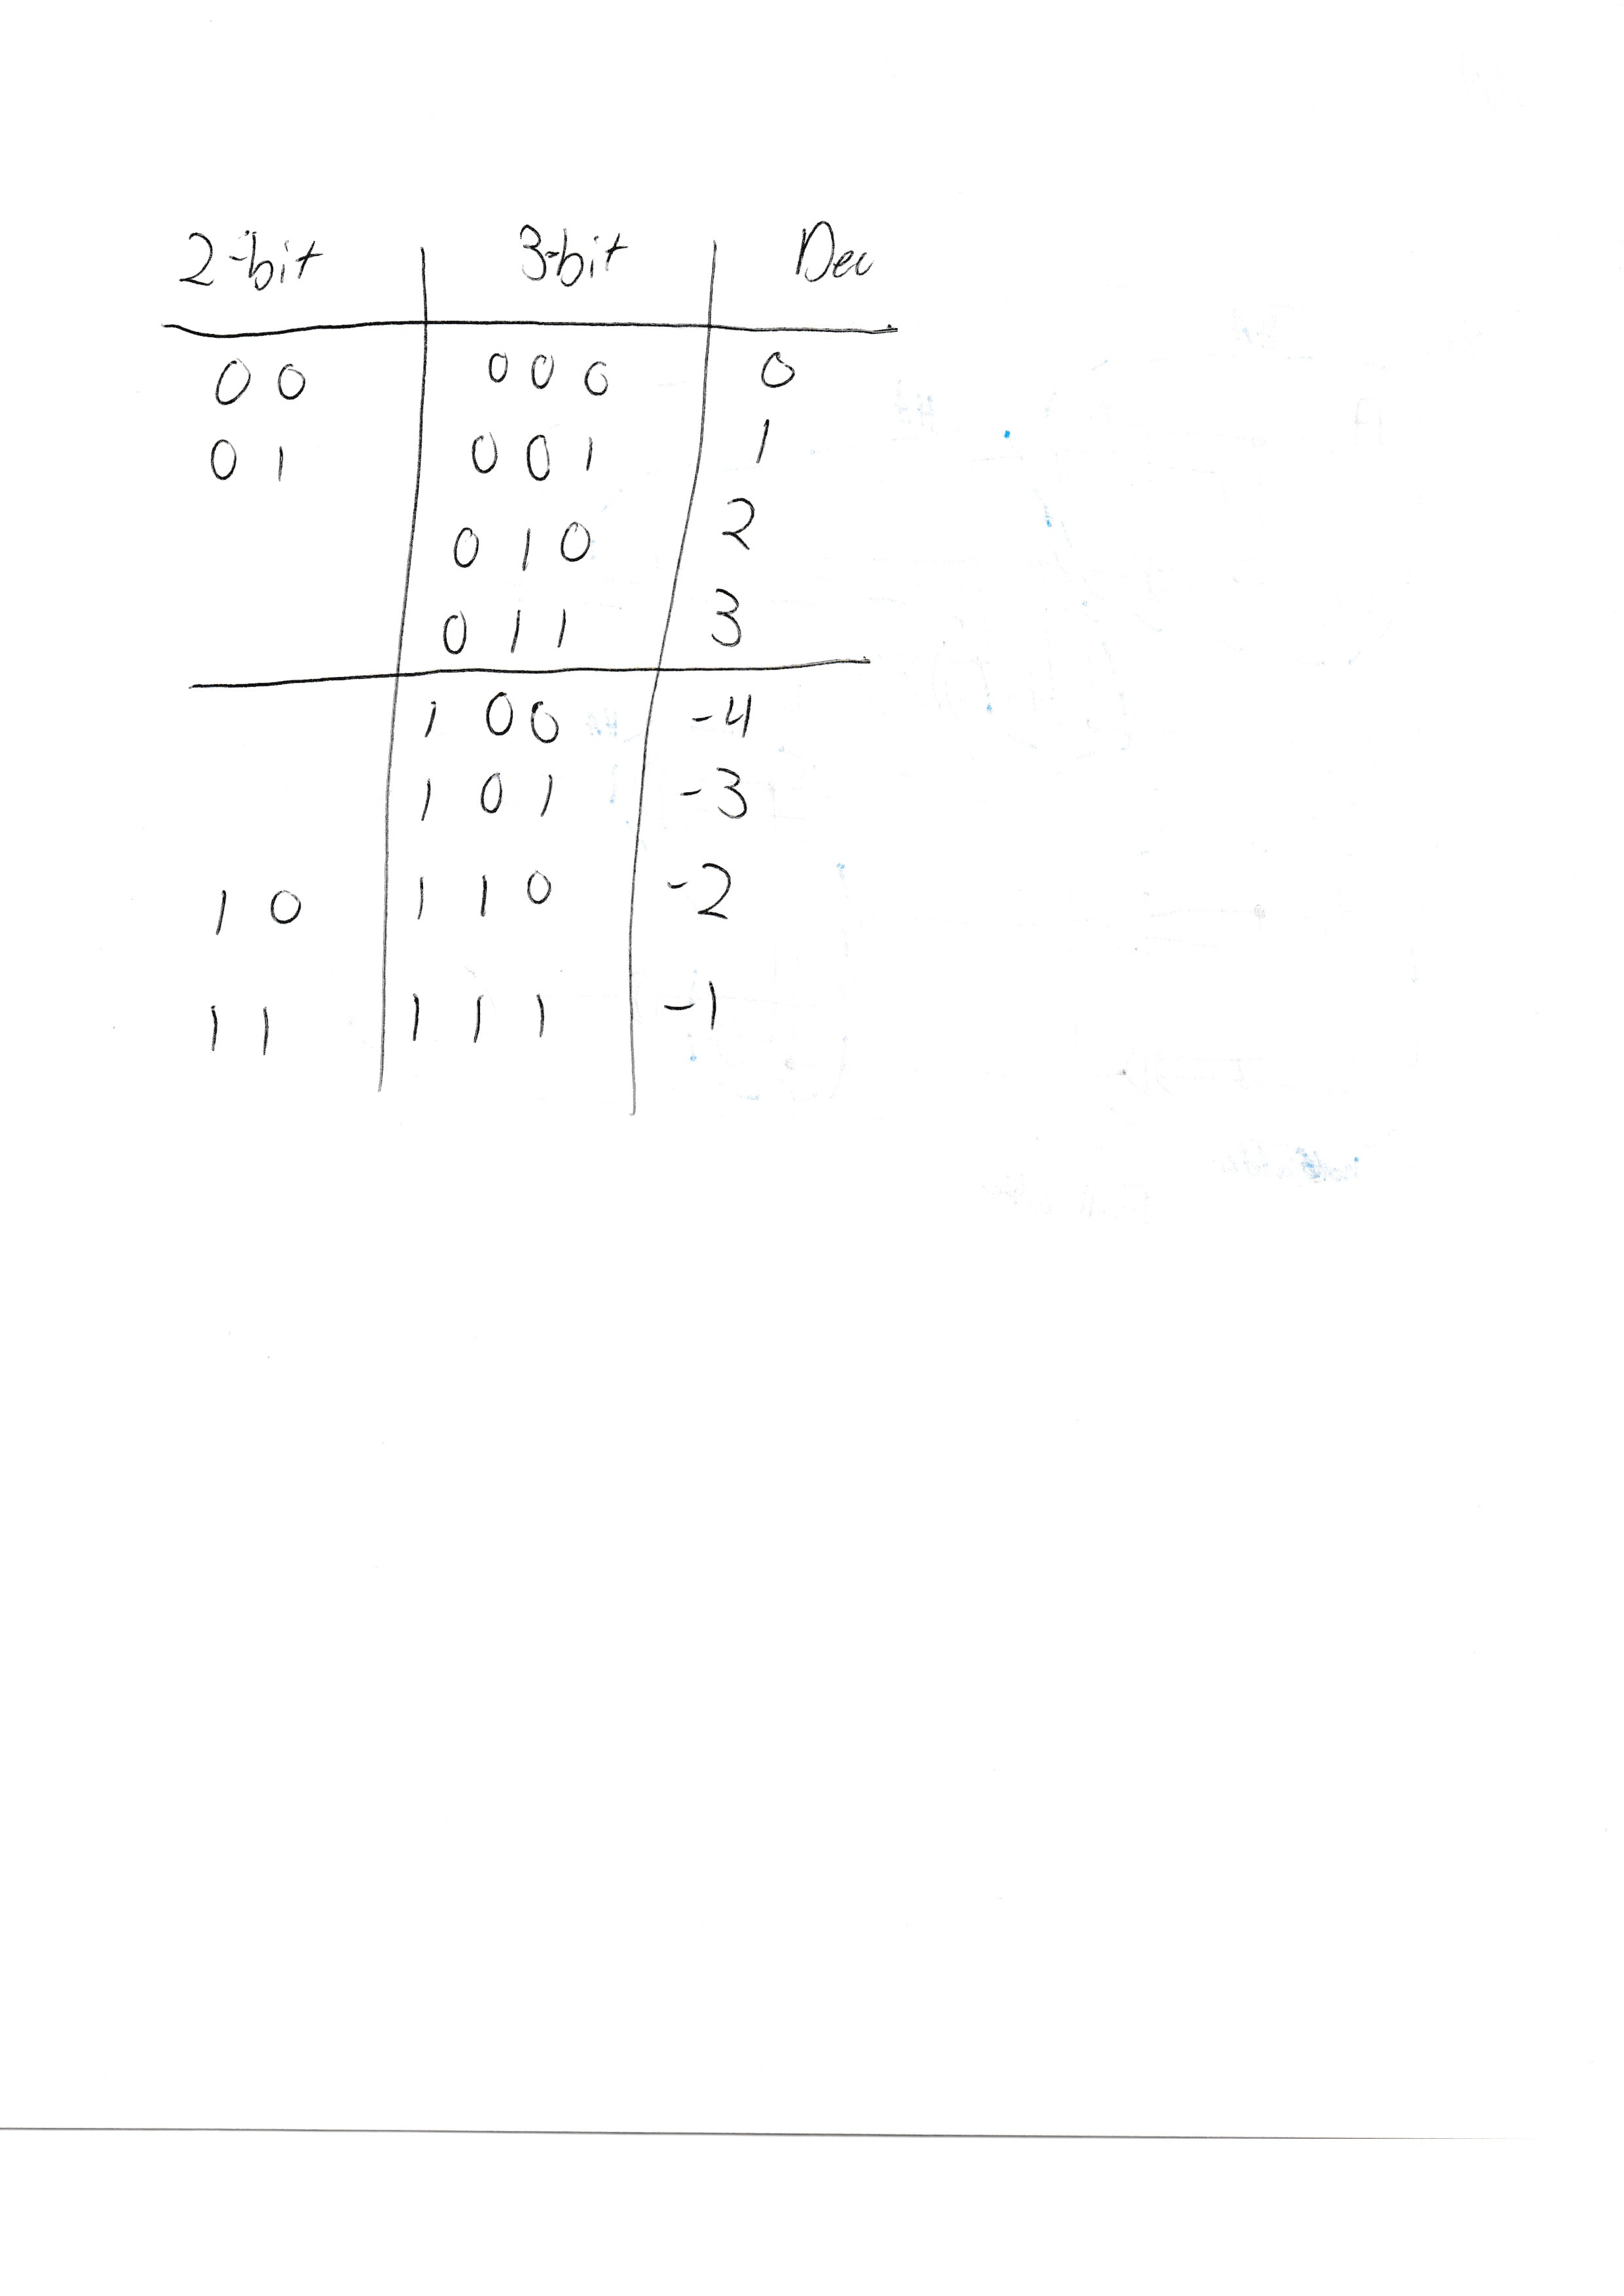 2-bit 3-bit Dec
00 000 0
01 001 1
010 2
011 3
100 -4
101 -3
10 110 -2
11 111 -1